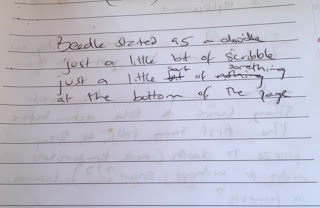 Beedle started as a doodle
just a little bit of scribble
just a little bit part of nothing something
at the bottom of the page